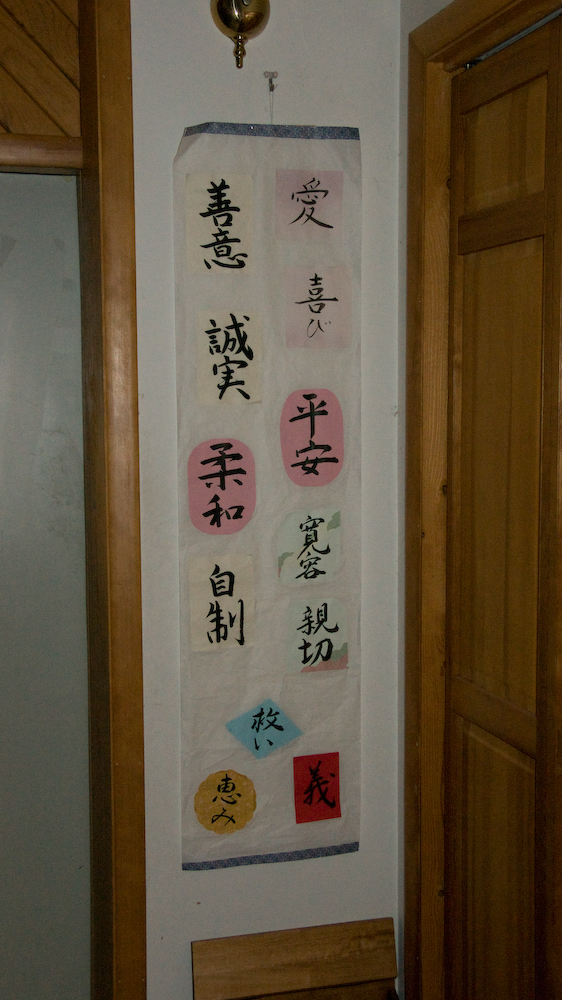 愛
喜び
平安
寛容
親切
善意
誠実
柔和
自制
救い
義
恵み